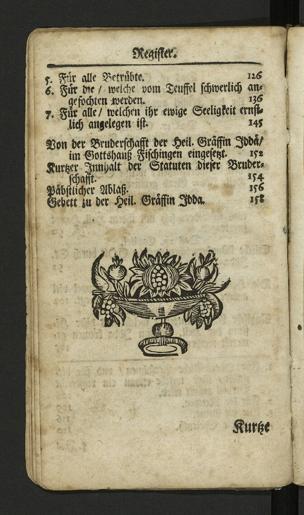 Register.
5. Für alle Betrübte. 126
6. Für die / welche vom Teuffel schwerlich an-
gefochten werden. 136
7. Für alle / welchen ihr ewige Seeligkeit ernst-
lich angelegen ist. 145
Von der Bruderschafft der Heil. Gräffin Iddä /
im Gottshauß Fischingen eingesetzt. 152
Kurtzer Innhalt der Statuten dieser Bruder-
schafft. 154
Päbstlicher Ablaß. 156
Gebett zu der Heil. Gräffin Idda. 158
Kurtze